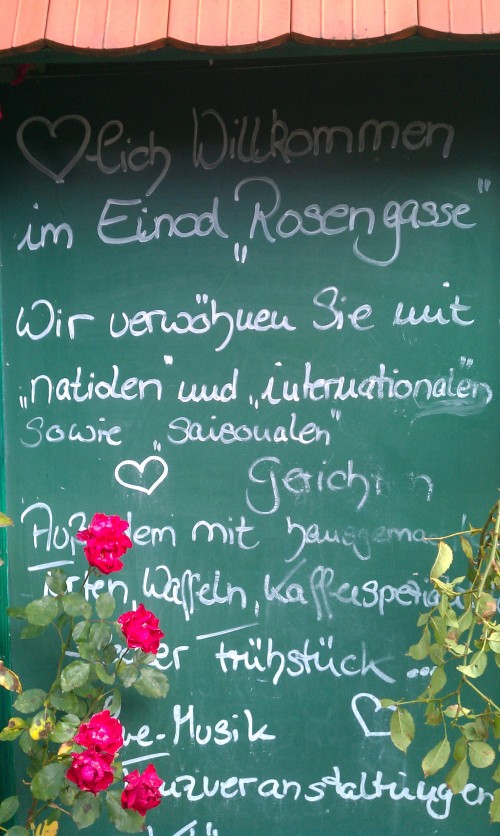 ♡-lich Willkommen
im Einöd „Rosengasse"
Wir verwöhnen Sie mit
„natiolen" und „internationalen
sowie „saisonalen"
Gerichten
Außerdem mit hausgema
Waffeln, Kaffeespezia
Frühstück...
-Musik